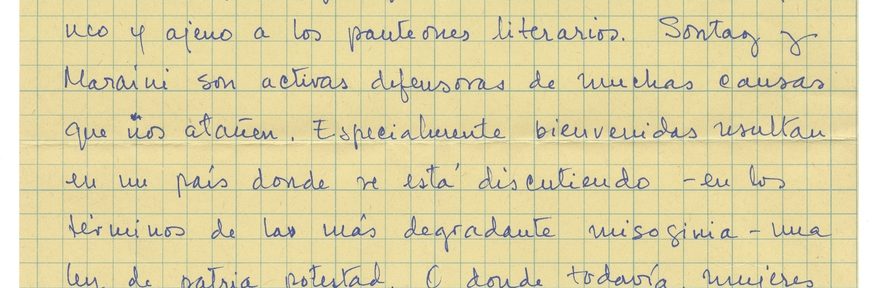 uco y ajeno a los panteones literarios. Sontag y
Maraini son activas defensoras de muchas causas
que nos atañen. Especialmente bienvenidas resultan
en un país donde se está discutiendo -en los
términos de la más degradante misoginia- una
ley de patria potestad. O donde todavía, mujeres